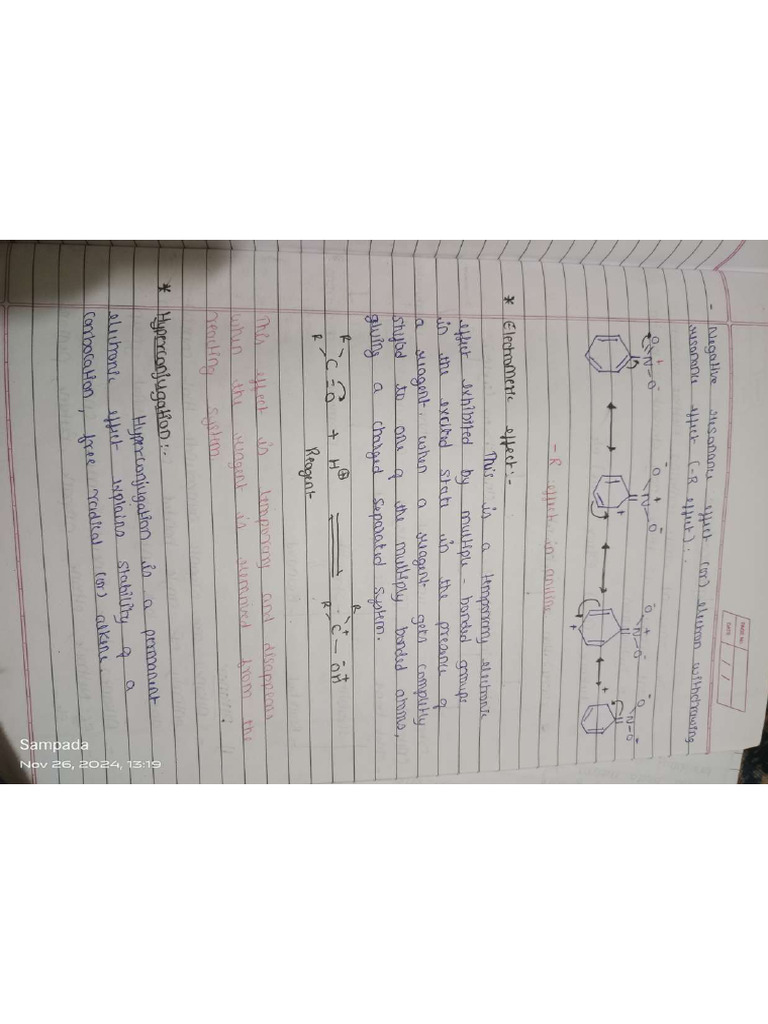 PAGE NO.
DATE / /
- Negative resonance effect (or) electron withdrawing
resonance effect (-R effect):-
O N O
+
-
O N O
+
-
-
O N O
+
-
-
O N O
-
-
+
+
+
- R effect in aniline
* Electromeric effect:-
This is a temporary electronic
effect exhibited by multiple - bonded groups
in the excited state in the presence of
a reagent when a reagent gets completly
shifted to one of the multiply bonded atoms,
giving a charged separated system.
R
R C = O + H⊕ ⇌ R
R C - OH
Reagent
This effect is temporary and disappears
when the reagent is removed from the
reacting system
* Hyperconjugation:-
Hyperconjugation is a permanent
electronic effect explains stability of a
carbocation, free radical (or) alkene
Sampada
Nov 26, 2024, 13:19